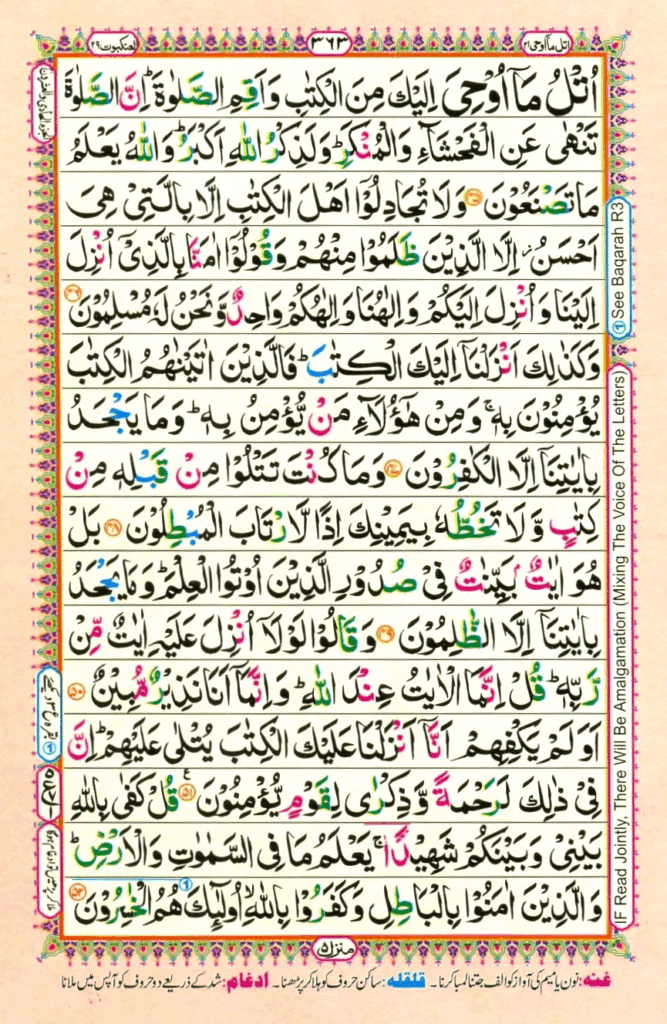 اتل مآ اوحی ۲۱
۳۶۳
العنكبوت ۲۹
اُتْلُ مَاۤ اُوْحِیَ اِلَیْكَ مِنَ الْكِتٰبِ وَاَقِمِ الصَّلٰوةَ ؕ اِنَّ الصَّلٰوةَ
تَنْهٰی عَنِ الْفَحْشَآءِ وَالْمُنْكَرِ ؕ وَلَذِكْرُ اللّٰهِ اَكْبَرُ ؕ وَاللّٰهُ یَعْلَمُ
مَا تَصْنَعُوْنَ ﴿۴۵﴾ وَلَا تُجَادِلُوْۤا اَهْلَ الْكِتٰبِ اِلَّا بِالَّتِیْ هِیَ
اَحْسَنُ ۖ اِلَّا الَّذِیْنَ ظَلَمُوْا مِنْهُمْ وَقُوْلُوْۤا اٰمَنَّا بِالَّذِیْۤ اُنْزِلَ
اِلَیْنَا وَاُنْزِلَ اِلَیْكُمْ وَاِلٰهُنَا وَاِلٰهُكُمْ وَاحِدٌ وَّنَحْنُ لَهٗ مُسْلِمُوْنَ ﴿۴۶﴾
وَكَذٰلِكَ اَنْزَلْنَاۤ اِلَیْكَ الْكِتٰبَ ؕ فَالَّذِیْنَ اٰتَیْنٰهُمُ الْكِتٰبَ
یُؤْمِنُوْنَ بِهٖ ۚ وَمِنْ هٰۤؤُلَآءِ مَنْ یُّؤْمِنُ بِهٖ ؕ وَمَا یَجْحَدُ
بِاٰیٰتِنَاۤ اِلَّا الْكٰفِرُوْنَ ﴿۴۷﴾ وَمَا كُنْتَ تَتْلُوْا مِنْ قَبْلِهٖ مِنْ
كِتٰبٍ وَّلَا تَخُطُّهٗ بِیَمِیْنِكَ اِذًا لَّارْتَابَ الْمُبْطِلُوْنَ ﴿۴۸﴾ بَلْ
هُوَ اٰیٰتٌۢ بَیِّنٰتٌ فِیْ صُدُوْرِ الَّذِیْنَ اُوْتُوا الْعِلْمَ ؕ وَمَا یَجْحَدُ
بِاٰیٰتِنَاۤ اِلَّا الظّٰلِمُوْنَ ﴿۴۹﴾ وَقَالُوْا لَوْلَاۤ اُنْزِلَ عَلَیْهِ اٰیٰتٌ مِّنْ
رَّبِّهٖ ؕ قُلْ اِنَّمَا الْاٰیٰتُ عِنْدَ اللّٰهِ ؕ وَاِنَّمَاۤ اَنَا نَذِیْرٌ مُّبِیْنٌ ﴿۵۰﴾
اَوَلَمْ یَكْفِهِمْ اَنَّاۤ اَنْزَلْنَا عَلَیْكَ الْكِتٰبَ یُتْلٰی عَلَیْهِمْ ؕ اِنَّ
فِیْ ذٰلِكَ لَرَحْمَةً وَّذِكْرٰی لِقَوْمٍ یُّؤْمِنُوْنَ ﴿۵۱﴾ قُلْ كَفٰی بِاللّٰهِ
بَیْنِیْ وَبَیْنَكُمْ شَهِیْدًا ۚ یَعْلَمُ مَا فِی السَّمٰوٰتِ وَالْاَرْضِ ؕ
وَالَّذِیْنَ اٰمَنُوْا بِالْبَاطِلِ وَكَفَرُوْا بِاللّٰهِ ۙ اُولٰٓئِكَ هُمُ الْخٰسِرُوْنَ ﴿۵۲﴾
منزل ۵
غنه: نون یا میم کی آواز کو الف جتنا لمبا کرنا۔ قلقله: ساکن حروف کو ہلا کر پڑھنا۔ ادغام: شد کے ذریعے دو حروف کو آپس میں ملانا
① See Baqarah R3
IF Read Jointly, There Will Be Amalgamation (Mixing The Voice Of The Letters)